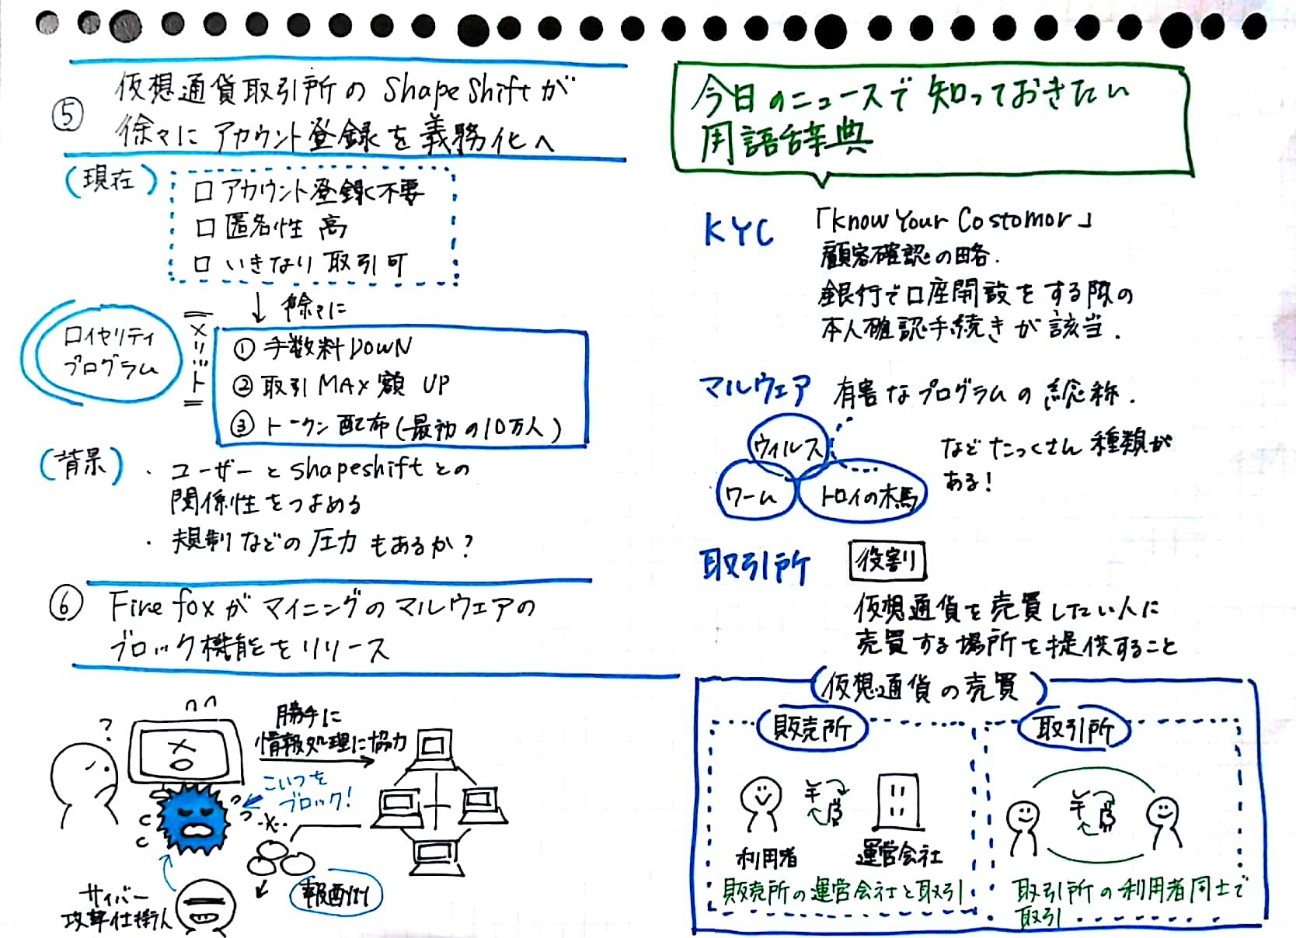 ⑤ 仮想通貨取引所の ShapeShiftが
徐々に アカウント登録を義務化へ
(現在)
□ アカウント登録不要
□ 匿名性 高
□ いきなり 取引可
↓ 徐々に
ロイヤリティ
プログラム
メリット
① 手数料DOWN
② 取引MAX額 UP
③ トークン配布(最初の10万人)
(背景)
・ユーザーとshapeshiftとの
関係性をつよめる
・規制などの圧力もあるか?
⑥ Firefoxがマイニングのマルウェアの
ブロック機能をリリース
?
勝手に
情報処理に協力
こいつを
ブロック!
報酬
サイバー
攻撃仕掛人
今日のニュースで知っておきたい
用語辞典
KYC
「Know Your Costomor」
顧客確認の略.
銀行で口座開設をする際の
本人確認手続きが該当.
マルウェア
有害なプログラムの総称.
ウィルス
ワーム
トロイの木馬
などたっくさん種類が
ある!
取引所
役割
仮想通貨を売買したい人に
売買する場所を提供すること
(仮想通貨の売買)
販売所
¥
利用者
運営会社
販売所の運営会社と取引
取引所
¥
取引所の利用者同士で
取引